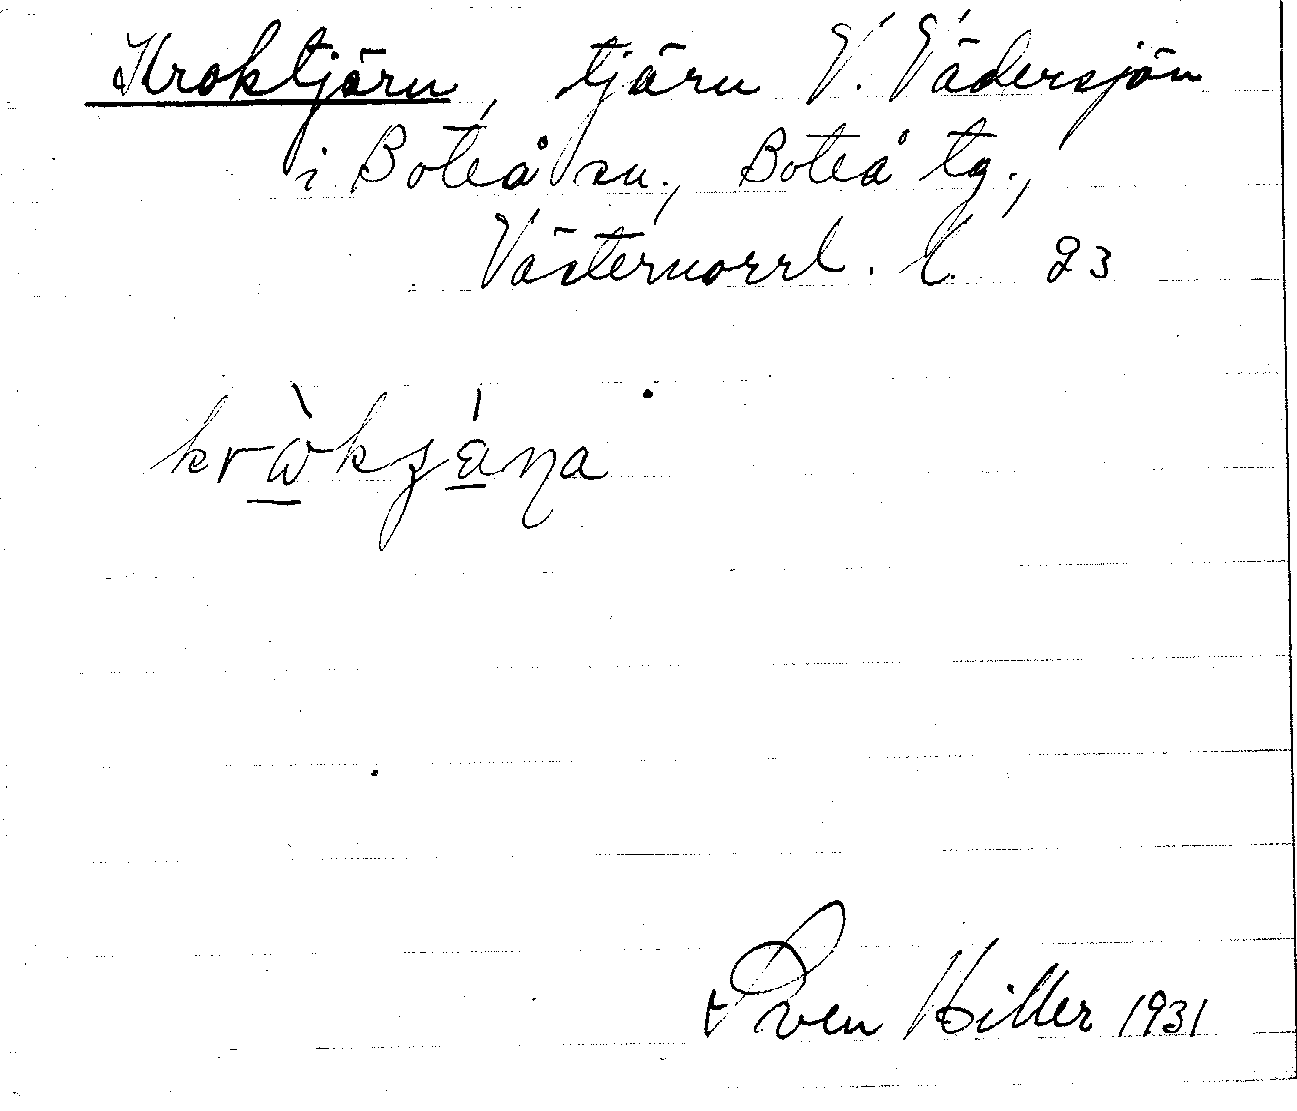 Kroktjärn, tjärn V. Vädersjön
i Boteå sn., Boteå tg.,
Västernorrl. l. 23
Sven Hiller 1931